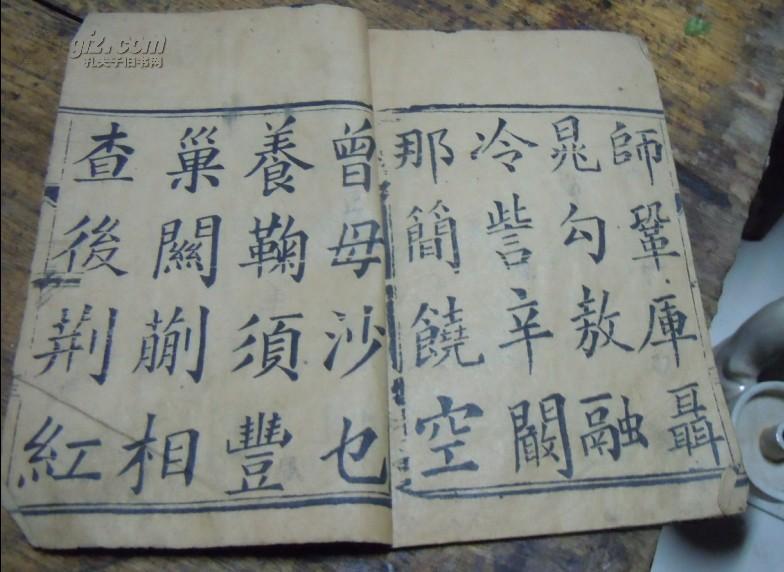 師鞏厙聶
晁勾敖融
冷訾辛闞
那簡饒空
曾毋沙乜
養鞠須豐
巢關蒯相
查後荊紅
gjz.com
孔夫子旧书网